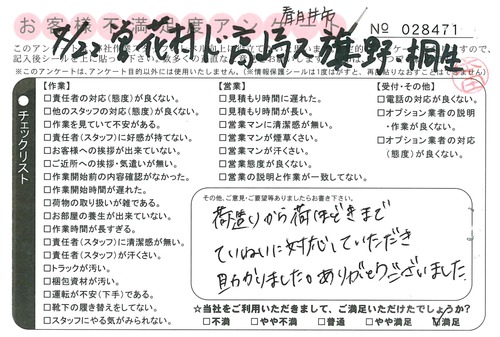 お客様不満足度アンケ
春日井市
No 028471
8/22
ド高崎 浅野 桐生
このアンケート
記入後シールを
※このアンケートは、アンケート目的以外には使用いたしません。(情報保護シールは1度はがすと、再度貼りなおすことはできません)
チェックリスト
【作業】
□責任者の対応(態度)が良くない。
□他のスタッフの対応(態度)が良くない。
□作業を見ていて不安がある。
□責任者(スタッフ)に好感が持てない。
□お客様への挨拶が出来ていない。
□ご近所への挨拶・気遣いが無い。
□作業開始前の内容確認がなかった。
□作業開始時間が遅れた。
□荷物の取り扱いが雑である。
□お部屋の養生が出来ていない。
□作業時間が長すぎる。
□責任者(スタッフ)に清潔感が無い。
□責任者(スタッフ)が汗くさい。
□トラックが汚い。
□梱包資材が汚い。
□運転が不安(下手)である。
□靴下の履き替えをしてない。
□スタッフにやる気がみられない。
【営業】
□見積もり時間に遅れた。
□見積もり時間が長い。
□営業マンに清潔感が無い。
□営業マンが煙草くさい。
□営業マンが汗くさい。
□営業態度が良くない。
□営業の説明と作業が一致してない。
【受付・その他】
□電話の対応が良くない。
□オプション業者の説明
・作業が良くない。
□オプション業者の対応
(態度)が良くない。
その他、ご意見・ご要望等ありましたらお書き下さい。
荷造りから荷ほどきまで
ていねいに対応していただき
助かりました。ありがとうございました
☆当社をご利用いただきまして、ご満足いただけたでしょうか?
□不満 □やや不満 □普通 □やや満足 ☑満足